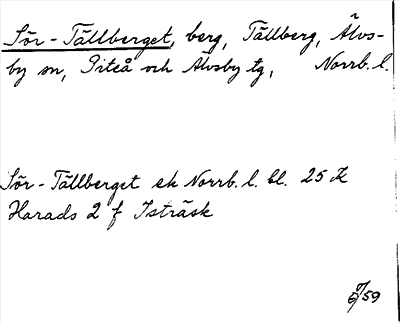 Sör-Tällberget, berg, Tällberg, Älvs-
by sn, Piteå och Älvsby tg, Norrb. l.
Sör-Tällberget ek Norrb. l. bl. 25 K
Harads 2 f Isträsk
/59